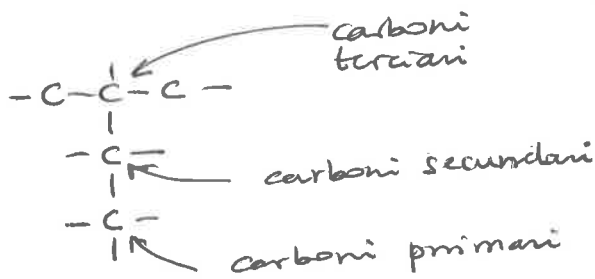 carboni
terciari
- C - C - C -
- C -
carboni secundari
- C -
carboni primari